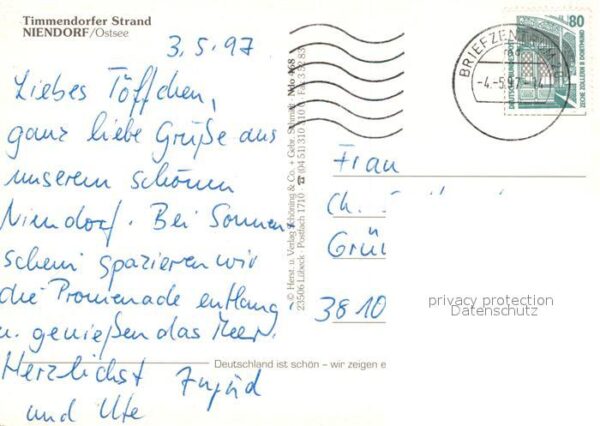 Timmendorfer Strand
NIENDORF/Ostsee
3.5.97
Liebes Töffchen,
ganz liebe Grüße aus
unserem schönen
Niendorf. Bei Sonnen-
schein spazieren wir
die Promenade entlang
u. genießen das Meer.
Herzlichst
und Ute
© Herst. u. Verlag Schöning & Co. + Gebr. Schmidt
23506 Lübeck · Postfach 1710 · ☎ (0451) 310
Deutschland ist schön – wir zeigen e
BRIEFZENTRUM
-4.-5.97
80
DEUTSCHE BUNDESPOST
ZECHE ZOLLERN II DORTMUND
Frau
Ch.
Grü
3810
privacy protection
Datenschutz